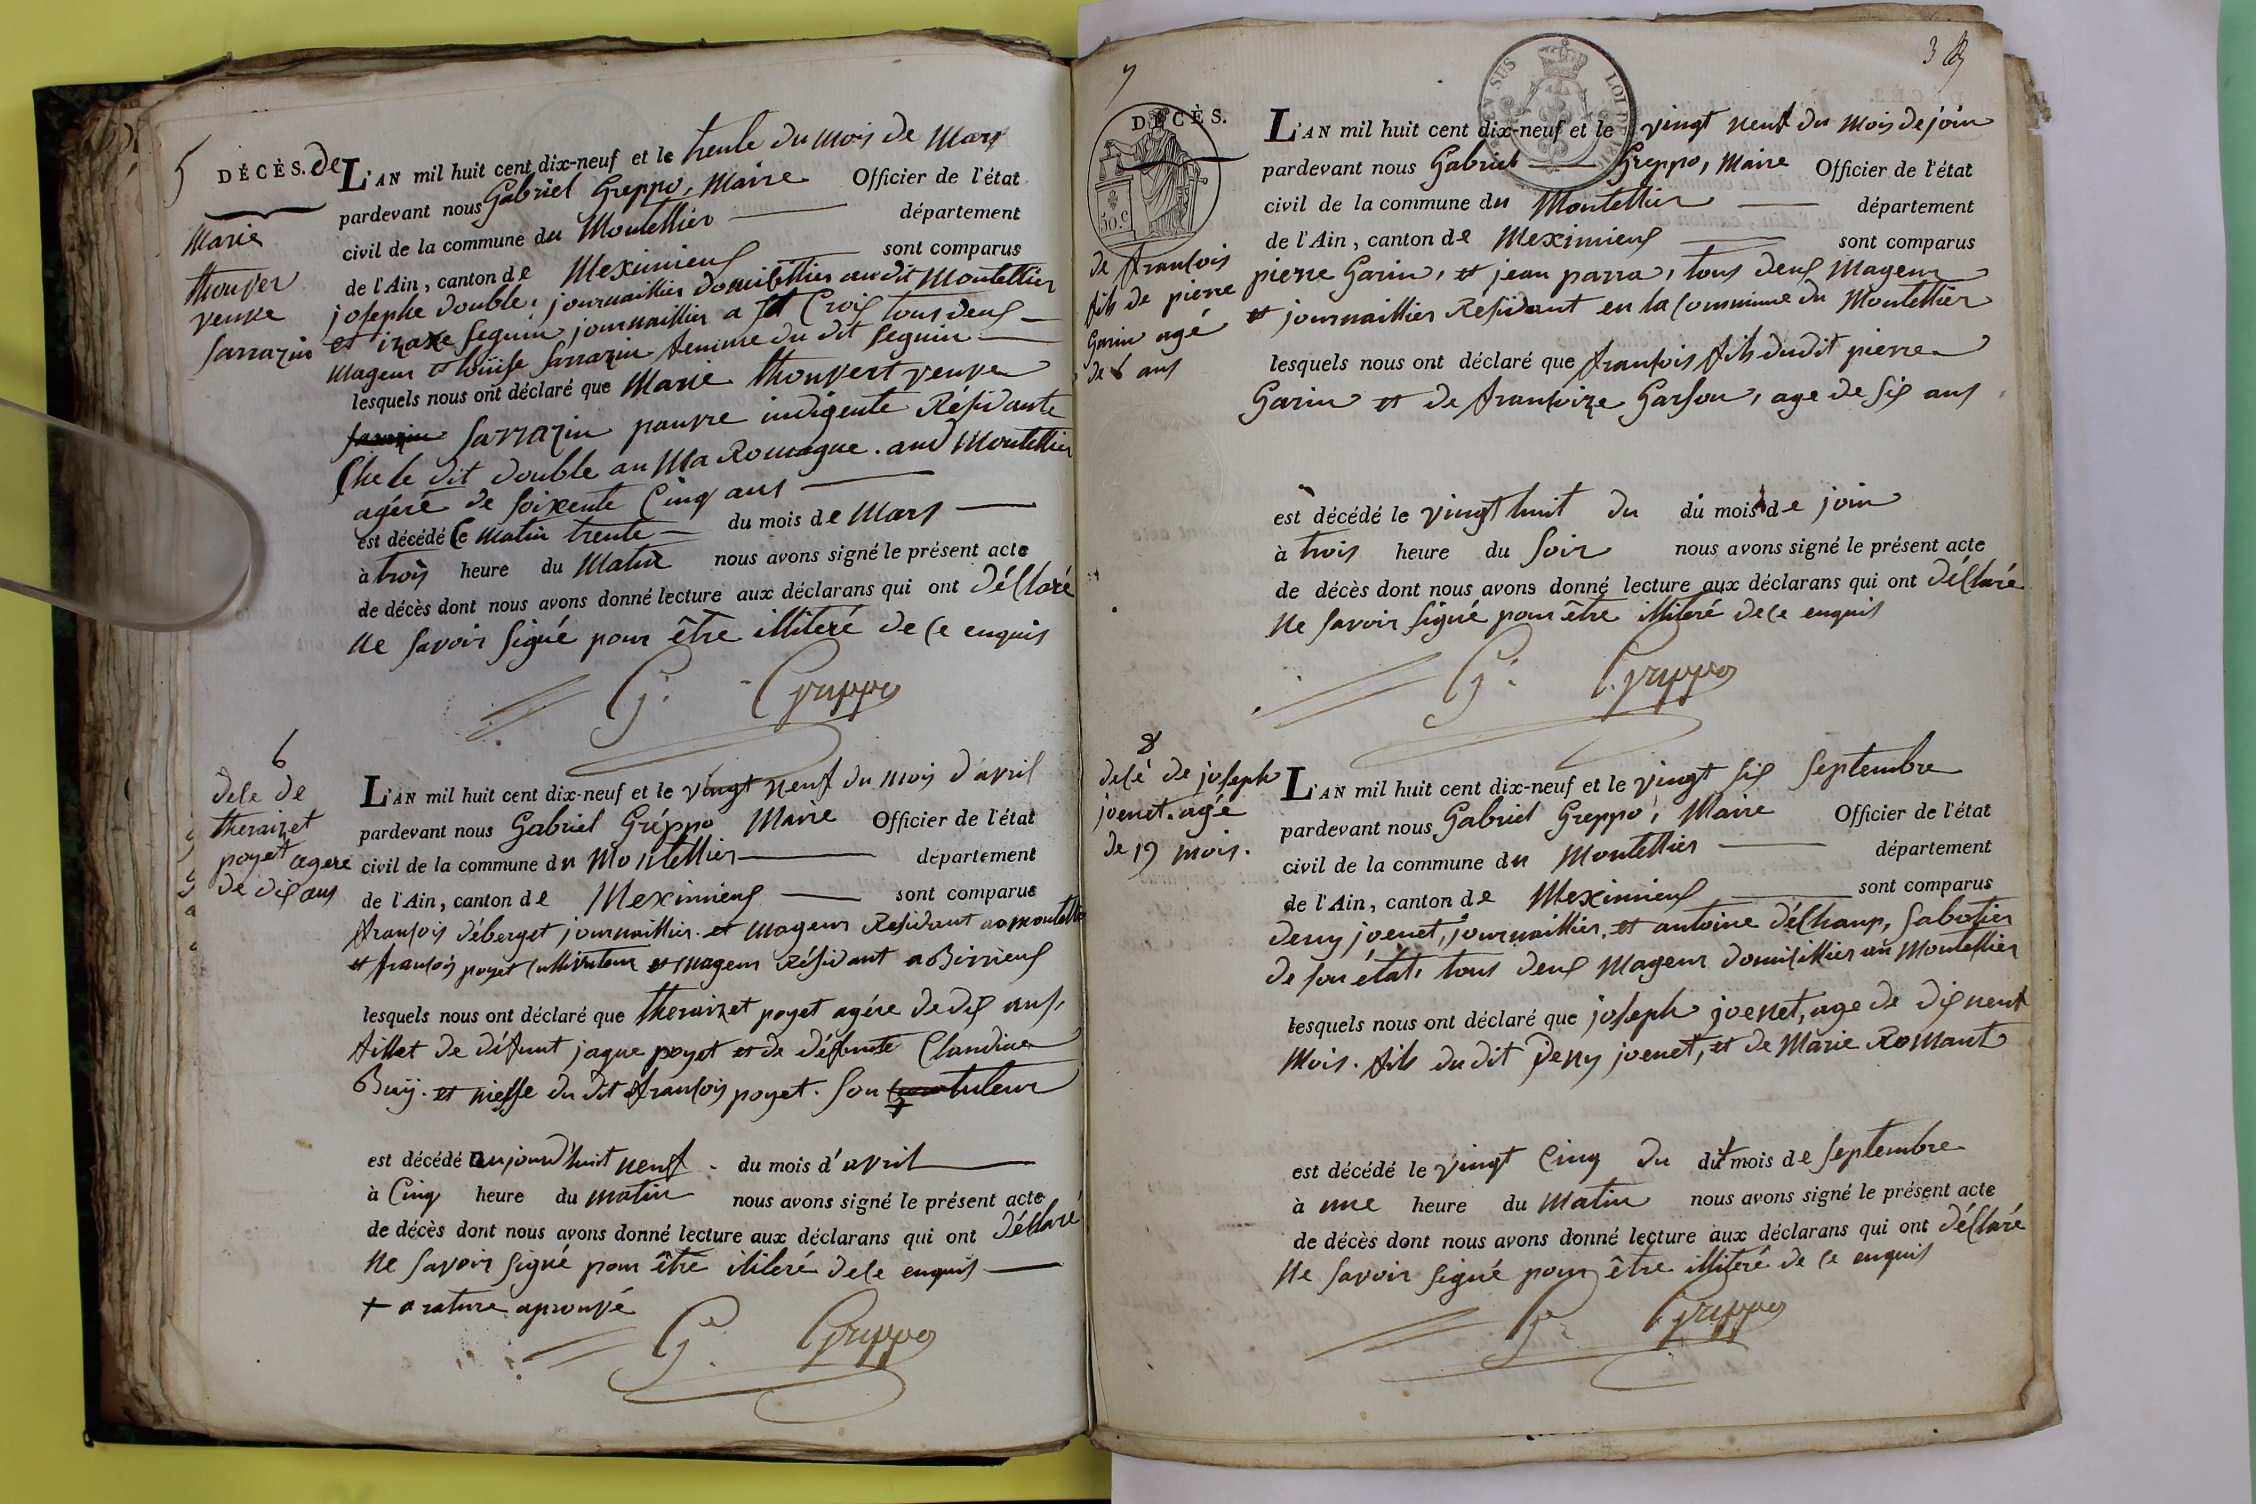 5
DÉCÈS. de
Marie
thouver
veuve
sarrazin
L'AN mil huit cent dix-neuf et le trente du mois de Mars
pardevant nous Gabriel Greppo, Maire Officier de l'état
civil de la commune du Montellier département
de l'Ain, canton de Meximieux sont comparus
josephe double, journaillier domicillier audit Montellier
et izaxe seguin journaillier a St Croix tous deux
mageur et loüise sarrazin femme du dit seguin
lesquels nous ont déclaré que Marie thouvert veuve
sarrazin pauvre indigente Résidante
Che le dit double au Ma Romagne. aud Montellier
agéré de soixente Cinq ans
est décédé Ce matin trente du mois de Mars
à trois heure du Matin nous avons signé le présent acte
de décès dont nous avons donné lecture aux déclarans qui ont déClaré
Ne savoir signé pour être illiteré de Ce enquis
G. Greppo
6
dese de
theraizet
poyet agere
de dix ans
L'AN mil huit cent dix-neuf et le vingt neuf du mois d'avril
pardevant nous Gabriel Gréppo Maire Officier de l'état
civil de la commune du Montellier département
de l'Ain, canton de Meximieux sont comparus
françois déberget journaillier. et mageur Residant au montellier
et françois poyet Cultivateur et mageur Résidant a Birrieux
lesquels nous ont déclaré que theraizet poyet agére de dix ans,
fillet de défunt jaque poyet et de défunte Claudine
Buij. et niesse du dit françois poyet. son tuteur
+
est décédé aujourd'huit neuf du mois d'avril
à Cinq heure du matin nous avons signé le présent acte
de décès dont nous avons donné lecture aux déclarans qui ont déClaré
Ne savoir signé pour être iliteré de Ce enquis
+ a rature aprouvé
G. Greppo
7
DÉCÈS.
50 c.
de françois
fils de pierre
Garin agé
de 6 ans
L'AN mil huit cent dix-neuf et le vingt neuf du mois de join
pardevant nous Gabriel Greppo, Maire Officier de l'état
civil de la commune du Montellier département
de l'Ain, canton de Meximieux sont comparus
pierre Garin, et jean parra, tous deux mageur
et journaillier Residant en la Commune du Montellier
lesquels nous ont déclaré que françois fils dudit pierre
Garin et de françoize Garson, age de six ans
est décédé le vingt huit du du mois de join
à trois heure du soir nous avons signé le présent acte
de décès dont nous avons donné lecture aux déclarans qui ont déClaré
Ne savoir signé pour être illiteré de Ce enquis
G. Greppo
8
desé de joseph
joenet. agé
de 19 mois.
L'AN mil huit cent dix-neuf et le vingt six septembre
pardevant nous Gabriel Greppo, Maire Officier de l'état
civil de la commune du Montellier département
de l'Ain, canton de Meximieux sont comparus
deny joenet, journaillier, et antoine déChamp, sabotier
de son état, tous deux mageur domicillier au Montellier
lesquels nous ont déclaré que joseph joenet, age de dix neuf
mois. fils du dit deny joenet, et de Marie Romant
est décédé le vingt Cinq du dit mois de septembre
à une heure du Matin nous avons signé le présent acte
de décès dont nous avons donné lecture aux déclarans qui ont déClaré
Ne savoir signé pour être illiteré de Ce enquis
G. Greppo